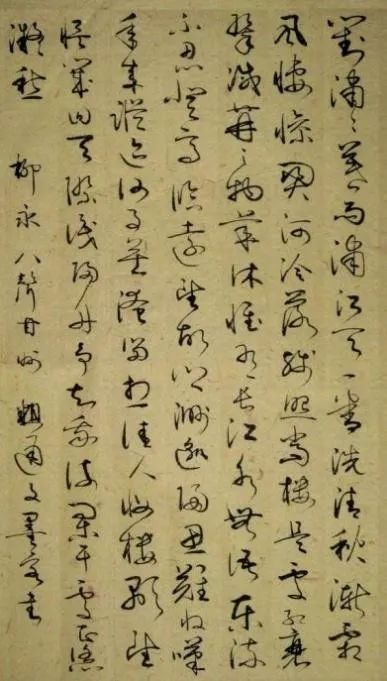 對瀟々暮雨灑江天一番洗清秋漸霜
風悽慘關河冷落殘照當樓是處紅衰
翠減苒々物華休惟有長江水無語東流
不忍登高臨遠望故鄉渺邈歸思難收嘆
年來蹤跡何事苦淹留想佳人妝樓顒望
誤幾回天際識歸舟爭知我倚闌干處正恁
凝愁 柳永八聲甘州 粗通文墨客書